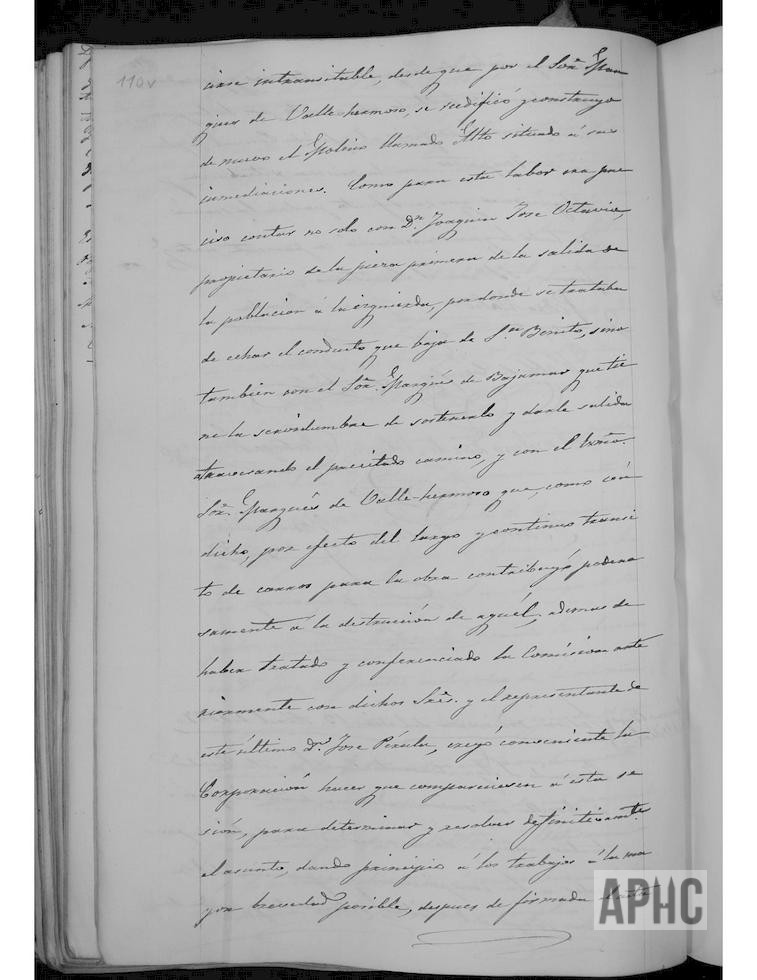 110v
cirse intransitable, desde que por el Sor. Mar
ques de Valle-hermoso, se reedificó y construyo
de nuevo el Molino llamado Alto situado á sus
inmediaciones. Como para esta labor era pre
ciso contar no solo con Dn. Joaquin Jose Octavio,
propietario de la pieza primera de la salida de
la poblacion á la izquierda, por donde se trataba
de echar el conducto que baja de Sn. Benito, sino
tambien con el Sor. Marqués de Bajamar que tie
ne la servidumbre de sostenerlo y darle salida
atravesando el precitado camino, y con el Exmo.
Sor. Marqués de Valle-hermoso que, como
dicho, por efecto del largo y continuo transi
to de carros para la obra contribuyó podero
samente a la destrucción de aquél, ademas de
haber tratado y conferenciado la Comision ante
riormente con dichos Sres. y el representante de
este último Dn. Jose Pérula, creyó conveniente la
Corporación hacer que compareciesen á esta se
sión, para determinar y resolver definitivamte.
el asunto, dando principio á los trabajos á la ma
yor brevedad posible, despues de formada
APHC